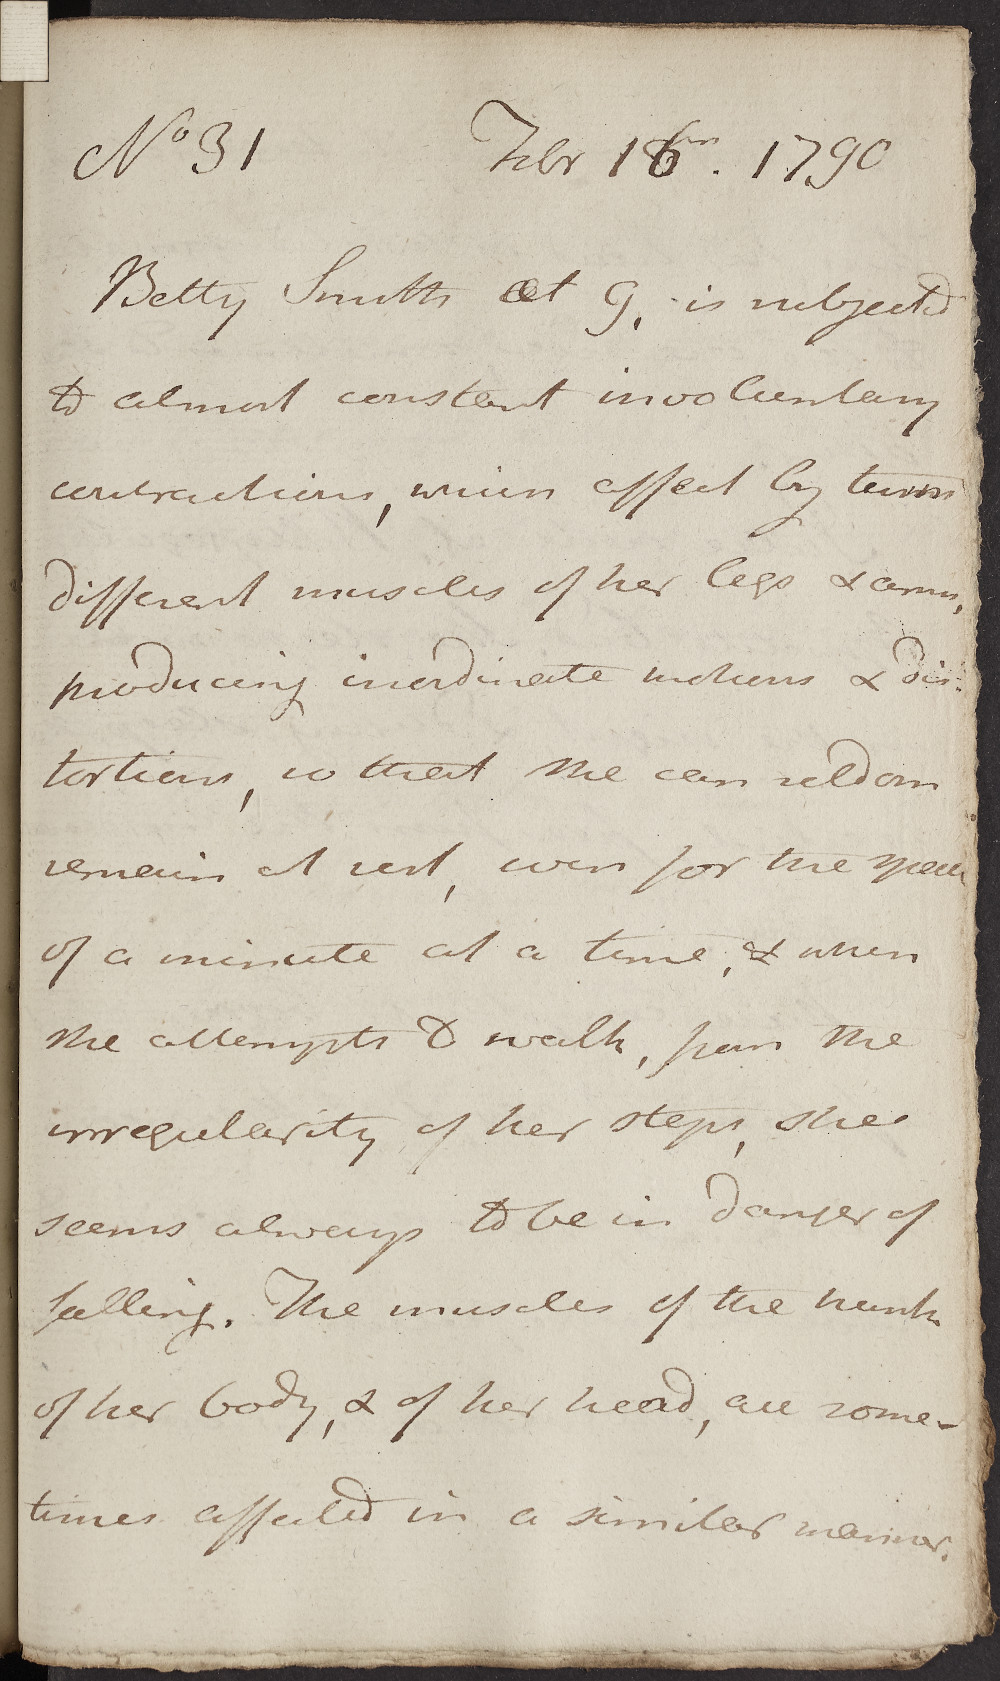 No 31 Febr 16th. 1790
Betty Smith æt 9, is subjected
to almost constant involuntary
contractions, which affect by turns
different muscles of her legs & arms,
producing inordinate motions & dis-
tortions, so that she can seldom
remain at rest, even for the space
of a minute at a time, & when
she attempts to walk, from the
irregularity of her steps, she
seems always to be in danger of
falling. The muscles of the trunk
of her body, & of her head, are some-
times affected in a similar manner.